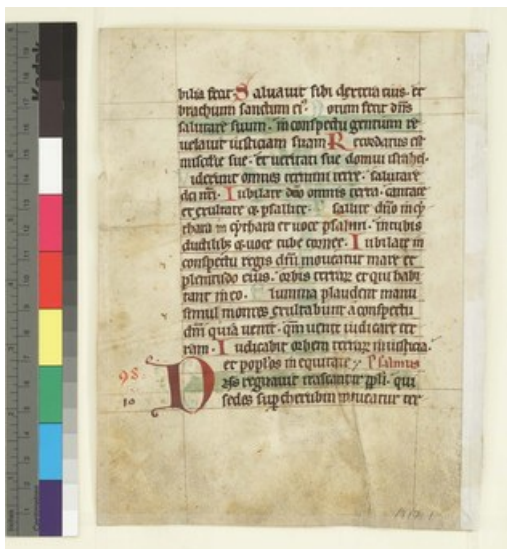 bilia fecit. Saluauit sibi dextera eius. et
brachium sanctum ei9. Notum fecit dns
salutare suum. in conspectu gentium re
uelauit iusticiam suam Recordatus est
miscdie sue. et ueritati sue domui israhel.
uiderunt omnes termini terre. salutare
dei nri. Iubilate deo omnis terra. cantate
et exultate et psallite. Psallite dno in cy
thara in cythara et uoce psalmi. in tubis
ductilib; et uoce tube cornee. Iubilate in
conspectu regis dni moueatur mare et
plenitudo eius. orbis terrar et qui habi
tant in eo. Flumina plaudent manu
simul montes exultabunt a conspectu
dni quia uenit. qm uenit iudicare ter
ram. Iudicabit orbem terrar in iusticia.
et poplos in equitate Psalmus
98. Dns regnauit irascantur ppli. qui
10 sedes sup cherubin moueatur ter
Kodak